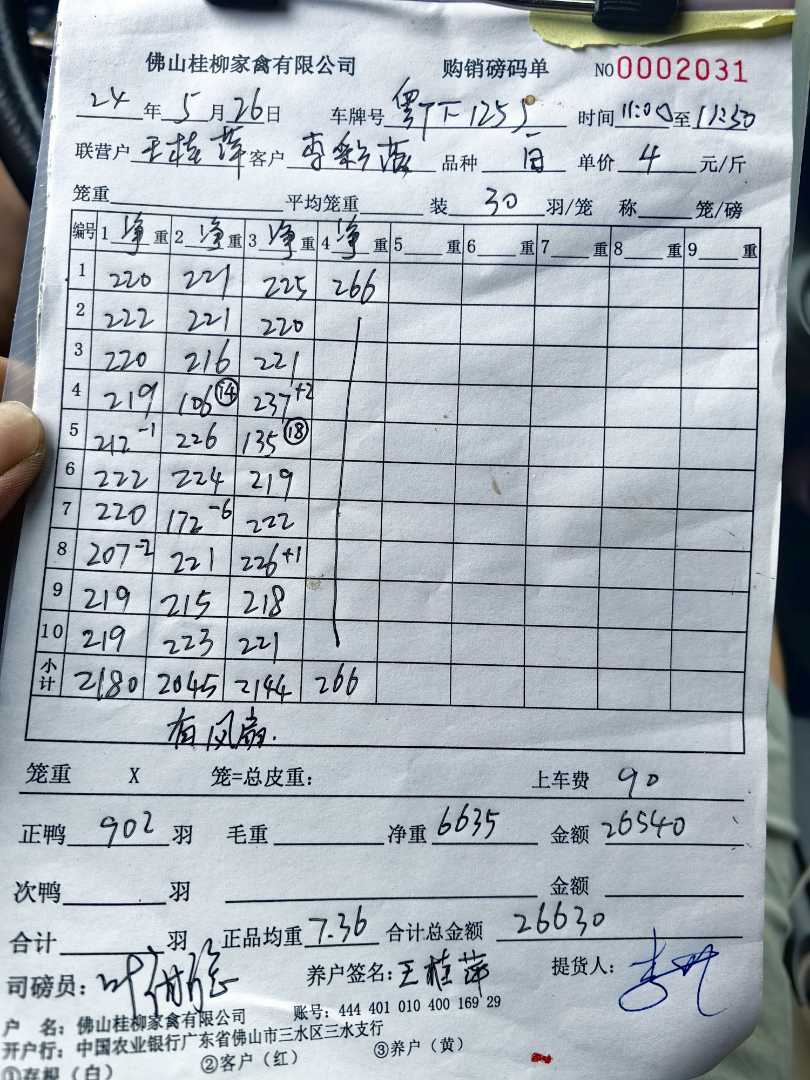 佛山桂柳家禽有限公司 购销磅码单 NO0002031
24年5月26日 车牌号 粤TF1255 时间11:00至11:50
联营户 王桂萍 客户 品种 白 单价 4 元/斤
笼重 平均笼重 装 30 羽/笼 称 笼/磅
编号 1 净 重 2 净 重 3 净 重 4 净 重 5 重 6 重 7 重 8 重 9 重
1 220 221 225 266
2 222 221 220
3 220 216 221
4 219 106⑭ 237+2
5 212-1 226 135⑱
6 222 224 219
7 220 172-6 222
8 207-2 221 226+1
9 219 215 218
10 219 223 221
小计 2180 2045 2144 266
有风扇.
笼重 X 笼=总皮重: 上车费 90
正鸭 902 羽 毛重 净重 6635 金额 26540
次鸭 羽 金额
合计 羽 正品均重 7.36 合计总金额 26630
司磅员: 养户签名: 王桂萍 提货人:
户 名: 佛山桂柳家禽有限公司 账号: 444 401 010 400 169 29
开户行: 中国农业银行广东省佛山市三水区三水支行
①存根(白) ②客户(红) ③养户(黄)